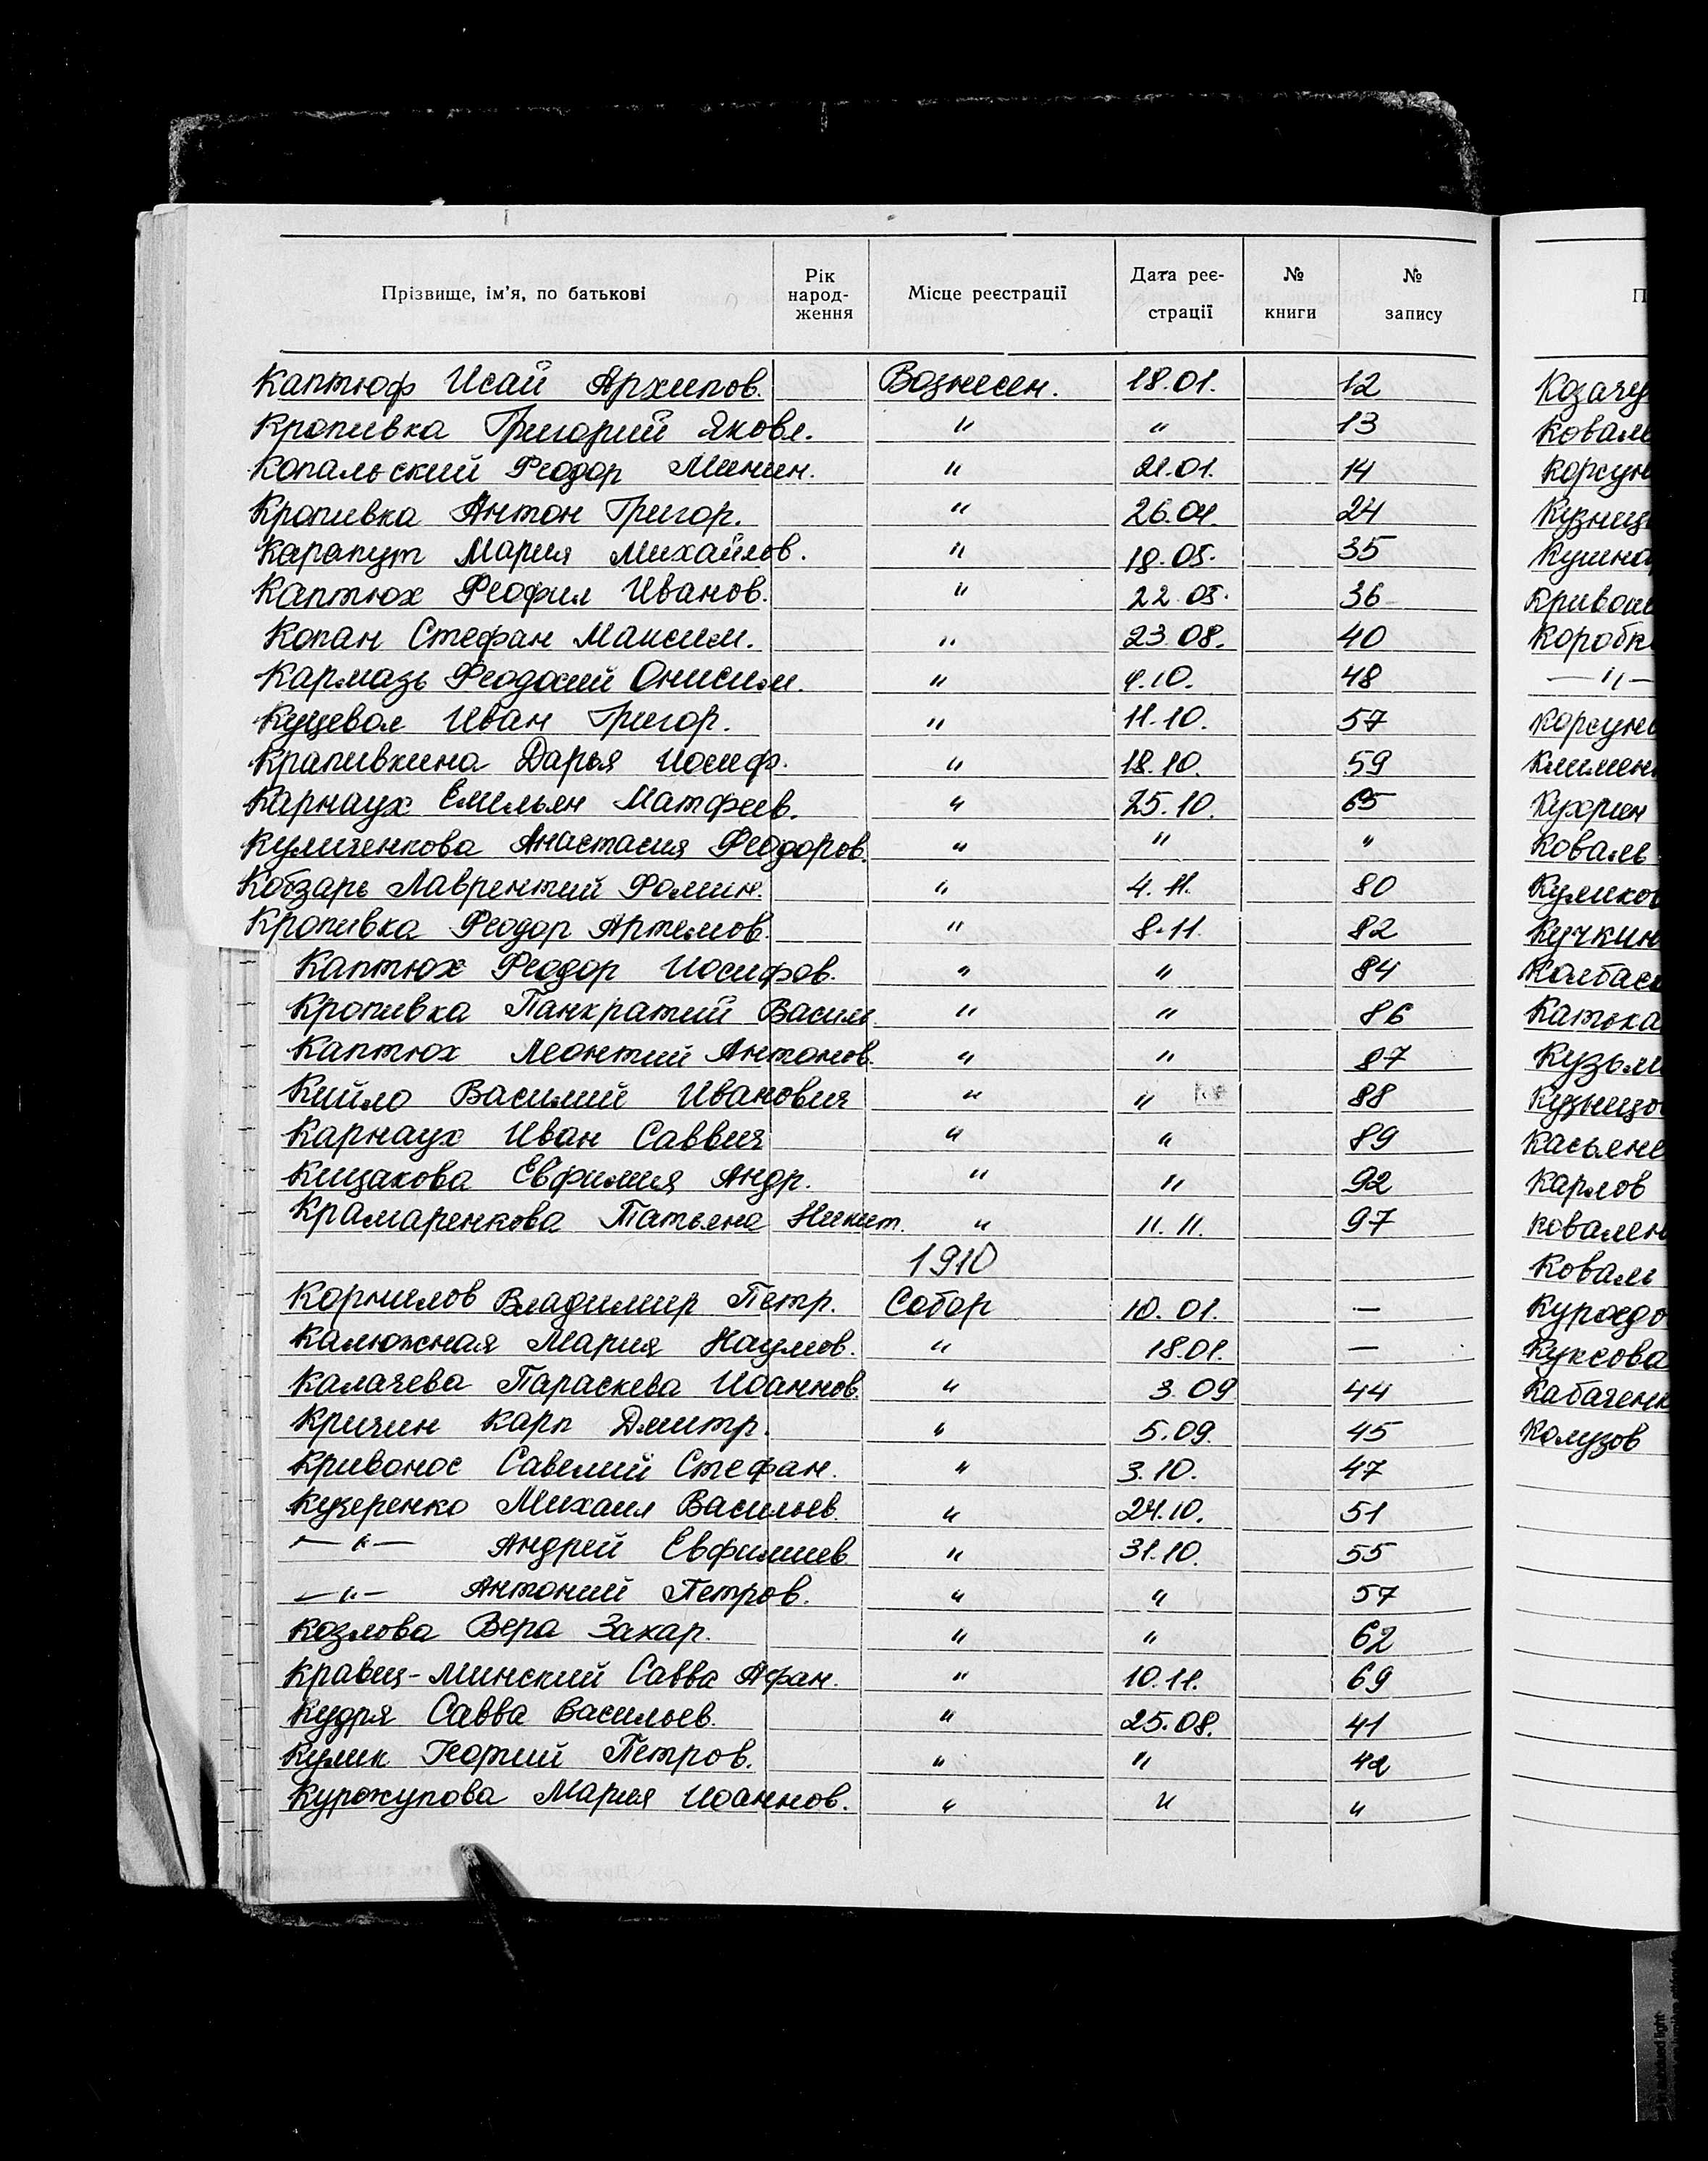 Прізвище, ім'я, по батькові Рік народ- ження Місце реєстрації Дата реє- страції № книги № запису
Каптюф Исай Архипов. Вознесен. 18.01. 12
Кропивка Григорий Яковл. " " 13
Копальский Феодор Минин. " 21.01. 14
Кропивка Антон Григор. " 26.04. 24
Карапут Мария Михайлов. " 18.05. 35
Каптюх Феофил Иванов. " 22.05. 36
Копан Стефан Максим. " 23.08. 40
Кармазь Феодосий Онисим. " 4.10. 48
Куцевол Иван Григор. " 11.10. 57
Крапивкина Дарья Иосиф. " 18.10. 59
Карнаух Емильян Матфеев. " 25.10. 65
Куличенкова Анастасия Феодоров. " " "
Кобзарь Лаврентий Фомин. " 4.11. 80
Кропивка Феодор Артемов. " 8.11. 82
Каптюх Феодор Иосифов. " " 84
Кропивка Панкратий Васил. " " 86
Каптюх Леонтий Антонов. " " 87
Кийло Василий Иванович " " 88
Карнаух Иван Саввич " " 89
Кищакова Евфимия Андр. " " 92
Крамаренкова Татьяна Никит. " 11.11. 97
1910
Корнилов Владимир Петр. Собор 10.01. —
Калюжная Мария Наумов. " 18.01. —
Калачева Параскева Иоаннов. " 3.09 44
Кричин Карп Дмитр. " 5.09. 45
Кривонос Савелий Стефан. " 3.10. 47
Кучеренко Михаил Васильев. " 24.10. 51
—"— Андрей Евфимиев. " 31.10. 55
—"— Антоний Петров. " " 57
Козлова Вера Захар. " " 62
Кравец-Минский Савва Афан. " 10.11. 69
Кудря Савва Васильев. " 25.08. 41
Кулик Георгий Петров. " " 42
Курожупова Мария Иоаннов. " " "
П
Козачу
Коваль
Корсун
Кузнец
Кушна
Кривон
Коробк
—"—
Корсун
Климен
Кухрин
Коваль
Куликов
Кучкин
Колбас
Катька
Кузьм
Кузнецо
Касьяне
Карлов
Ковален
Коваль
Куроедо
Куксова
Кабаченк
Колузов